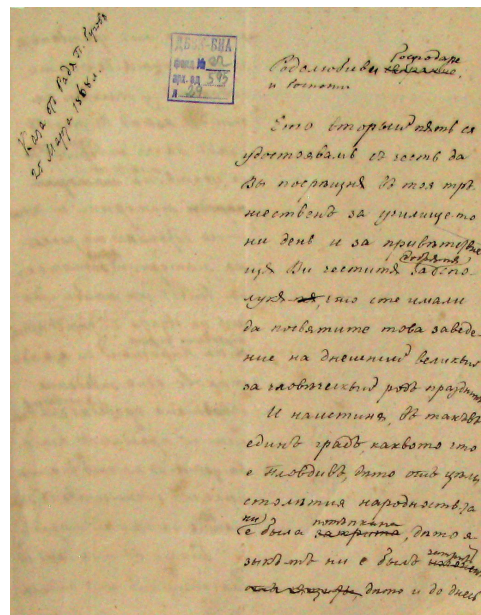 Каза отъ Радя П.
25 Марта 1868 л.
ДБИК-БИА
фонд №
арх. ед. 595
л. 29
Родолюбиви Господаре
и Госпожи
Ето вторый пѫть ся
удостоявамъ съ честь да
Вы посрѣщнѫ въ тоя тръ-
жественъ за училище то
ни день и за
щѫ Ви честитѫ
лукѫ что сте имали
да посвятите това заведе-
ние на днешний великий
за человѣческый родъ праздн
И наистинѫ, въ такъвъ
единъ градъ, каквото что
е Пловдивъ, дѣто отъ цѣлы
столѣтия народность та
ни е была потъпкана закрита, дѣто я
зыкътъ ни е былъ
дѣто и до днесь